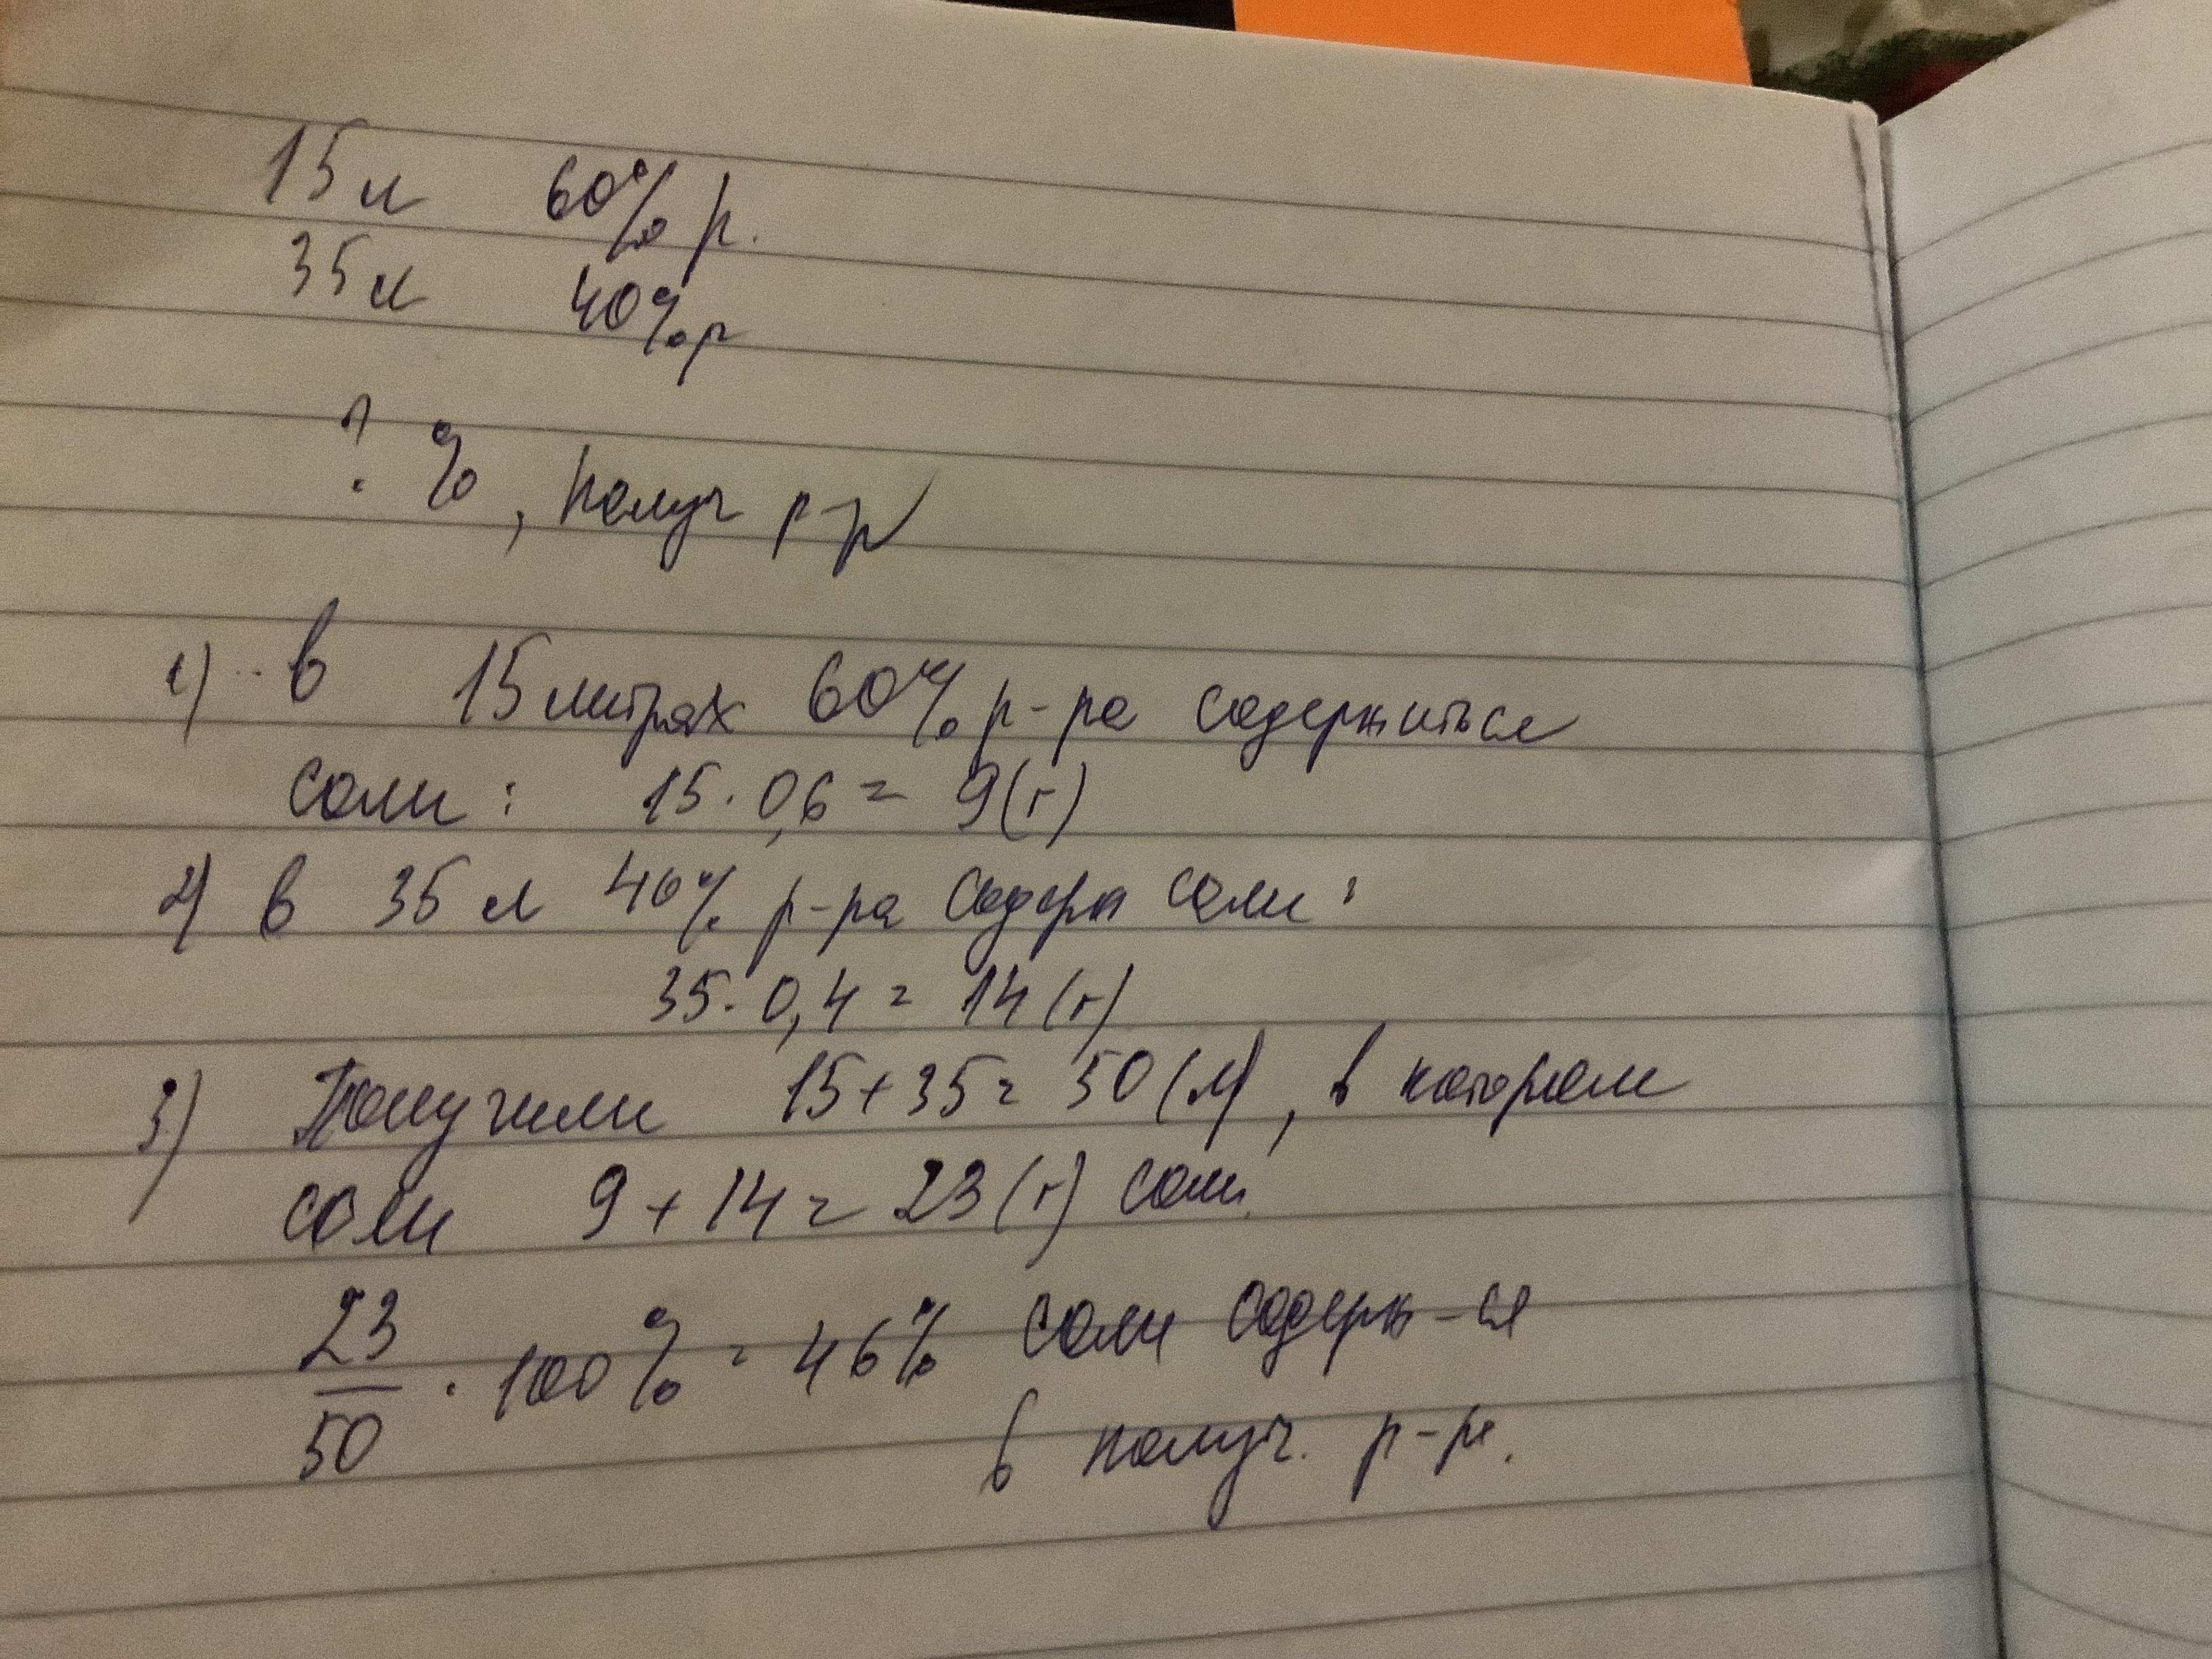 15 л 60% р.
35 л 40% р
? %, получ р-р
1) в 15 литрах 60% р-ра содержиться
соли: 15 · 0,6 = 9 (г)
2) в 35 л 40% р-ра содерж соли:
35 · 0,4 = 14 (г)
3) Получили 15 + 35 = 50 (л), в котором
соли 9 + 14 = 23 (г) соли.
23/50 · 100% = 46% соли содерж-ся
в получ. р-ре.